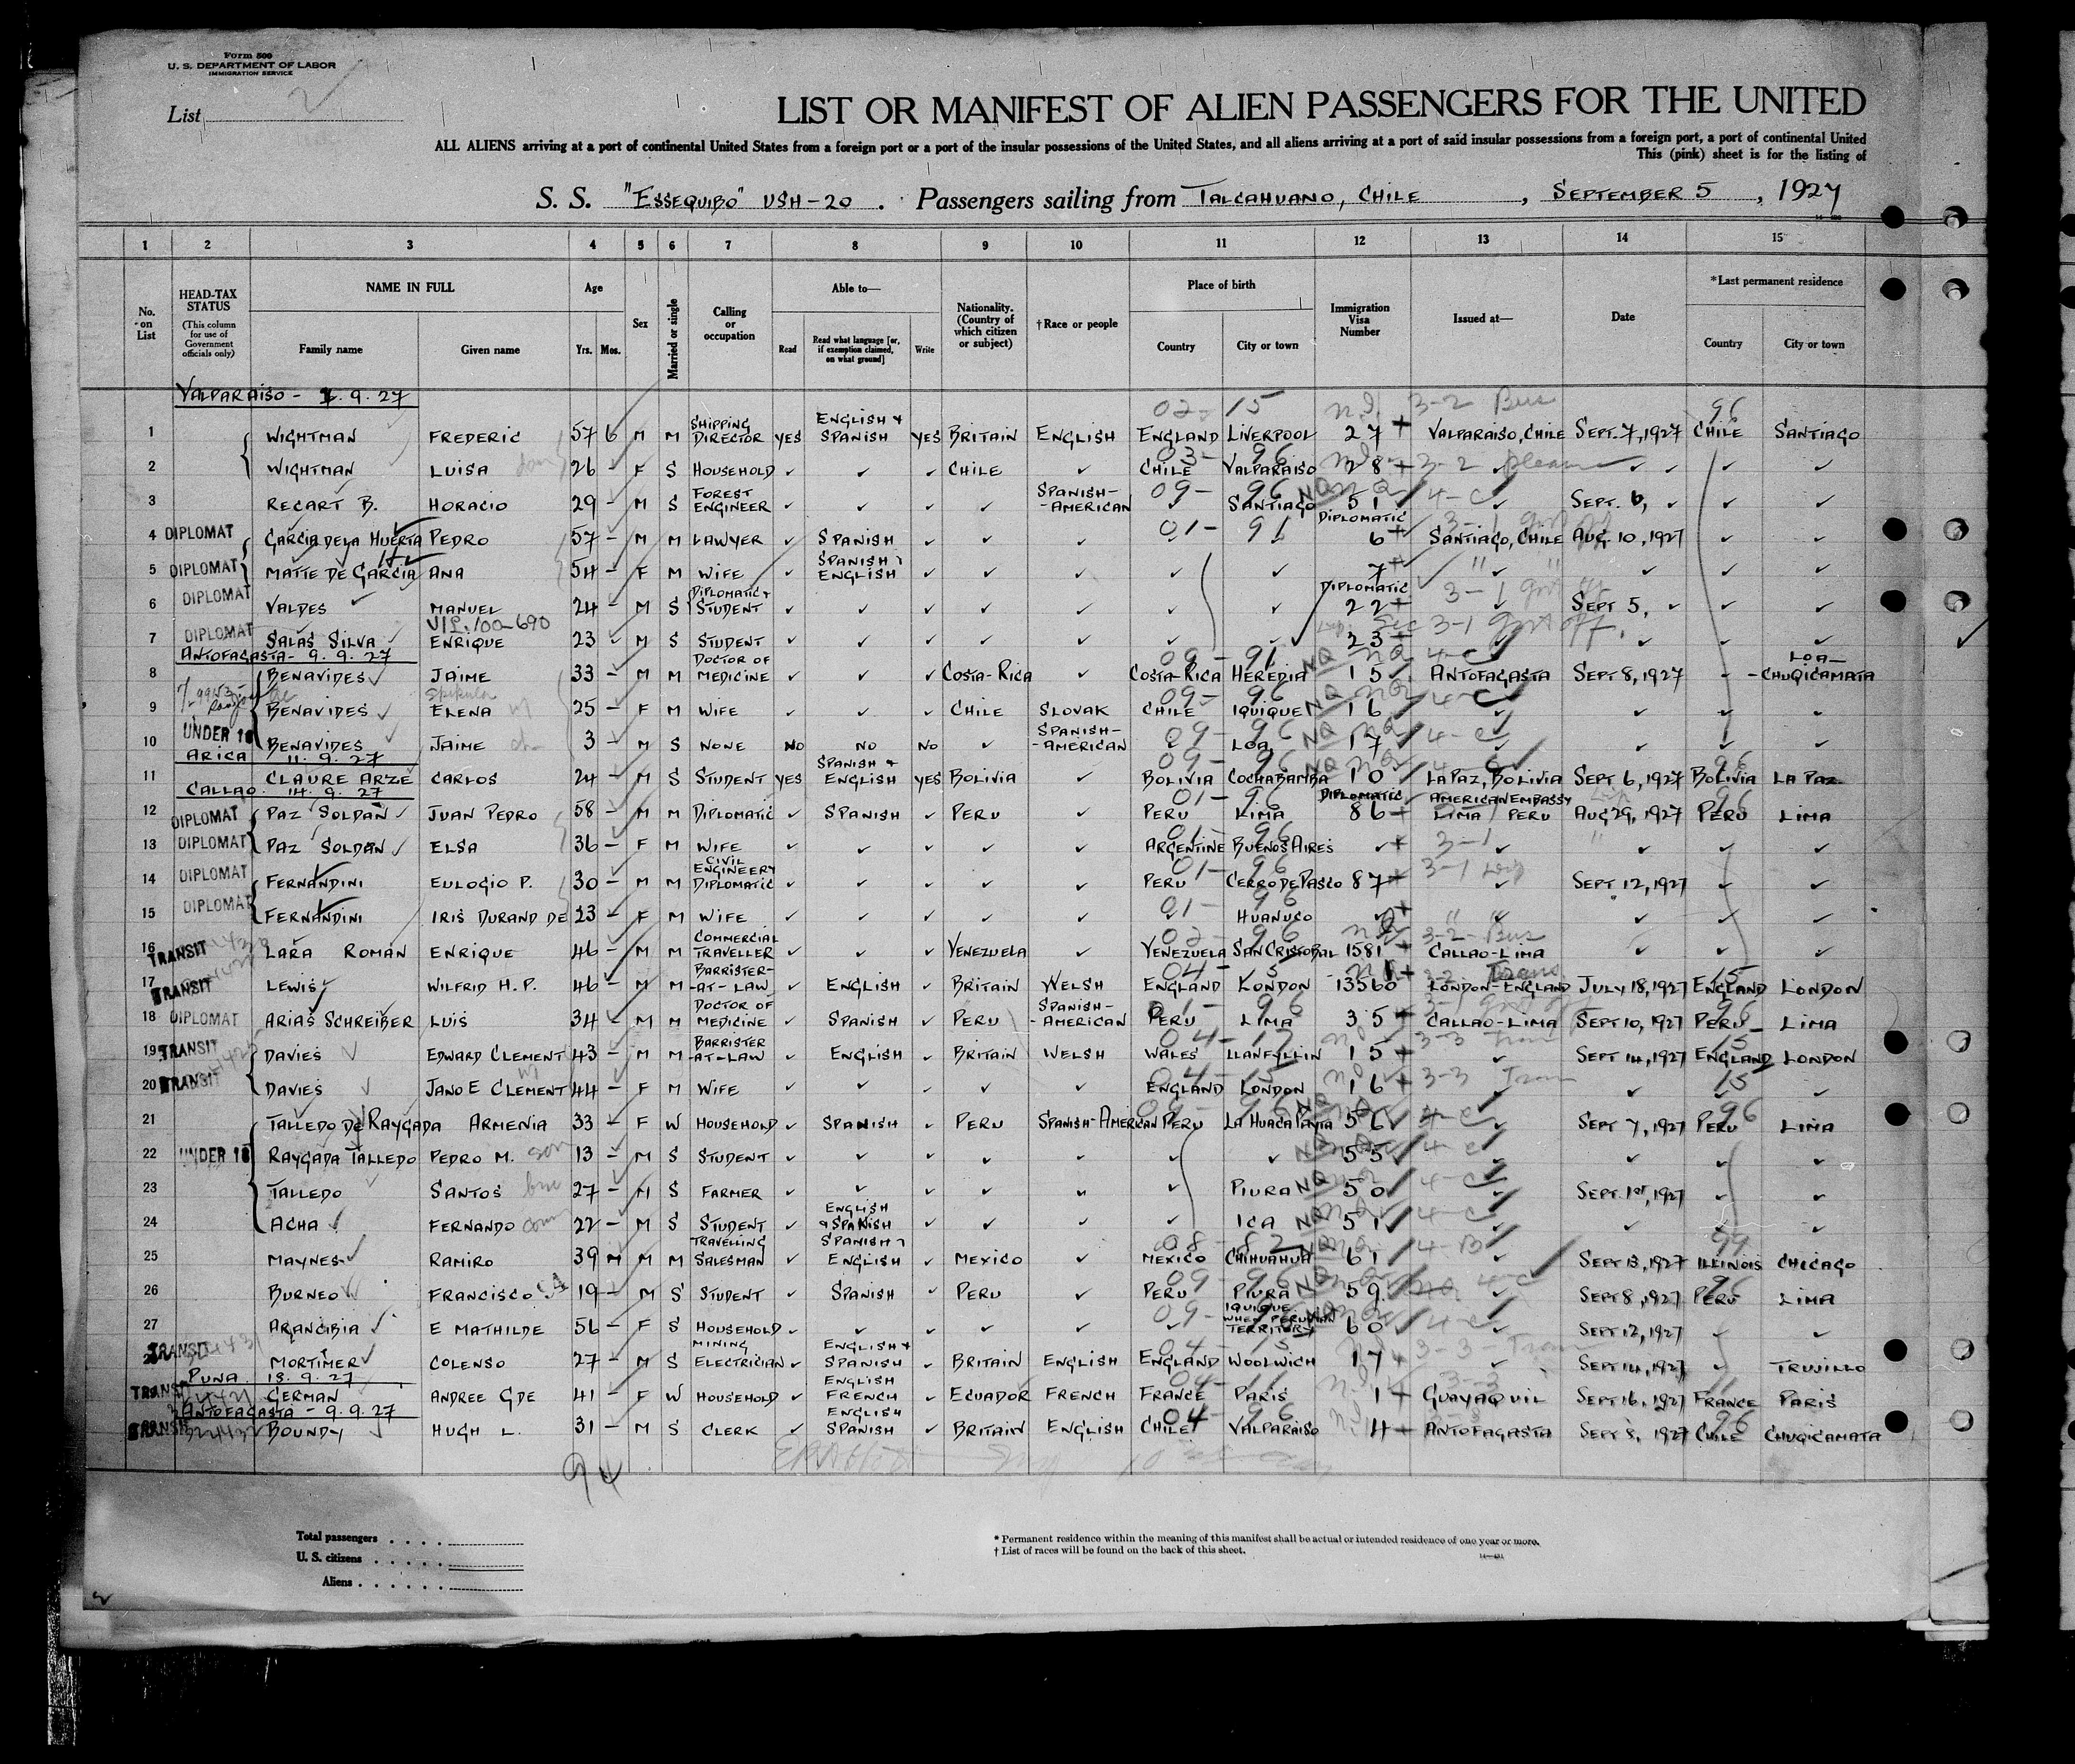 Form 500
U. S. DEPARTMENT OF LABOR
IMMIGRATION SERVICE
List 2
LIST OR MANIFEST OF ALIEN PASSENGERS FOR THE UNITED
ALL ALIENS arriving at a port of continental United States from a foreign port or a port of the insular possessions of the United States, and all aliens arriving at a port of said insular possessions from a foreign port, a port of continental United
This (pink) sheet is for the listing of
S. S. "ESSEQUIBO" VSH-20 . Passengers sailing from TALCAHUANO, CHILE , SEPTEMBER 5 , 1927
1 2 3 4 5 6 7 8 9 10 11 12 13 14 15
No. on List
HEAD-TAX STATUS (This column for use of Government officials only)
NAME IN FULL
Family name Given name
Age
Yrs. Mos.
Sex
Married or single
Calling or occupation
Able to—
Read
Read what language [or, if exemption claimed, on what ground]
Write
Nationality. (Country of which citizen or subject)
†Race or people
Place of birth
Country City or town
Immigration Visa Number
Issued at—
Date
*Last permanent residence
Country City or town
VALPARAISO - 7. 9. 27
1 WIGHTMAN FREDERIC 57 6 M M SHIPPING DIRECTOR YES ENGLISH & SPANISH YES BRITAIN ENGLISH ENGLAND LIVERPOOL 27 VALPARAISO, CHILE SEPT. 7, 1927 CHILE SANTIAGO
2 WIGHTMAN LUISA 26 - F S HOUSEHOLD ✓ ✓ ✓ CHILE ✓ CHILE VALPARAISO 28 ✓ ✓ ✓ ✓ ✓
3 RECART B. HORACIO 29 - M S FOREST ENGINEER ✓ ✓ ✓ ✓ SPANISH-AMERICAN ✓ SANTIAGO 51 4-C ✓ SEPT. 6, ✓ ✓ ✓
4 DIPLOMAT GARCIA DE LA HUERTA PEDRO 57 - M M LAWYER ✓ SPANISH ✓ ✓ ✓ ✓ ✓ DIPLOMATIC 6 SANTIAGO, CHILE AUG. 10, 1927 ✓ ✓
5 DIPLOMAT MATTE DE GARCIA ANA 54 - F M WIFE ✓ SPANISH & ENGLISH ✓ ✓ ✓ ✓ ✓ 7 ✓ ✓ ✓ ✓
6 DIPLOMAT VALDES MANUEL 24 - M S DIPLOMATIC & STUDENT ✓ ✓ ✓ ✓ ✓ ✓ ✓ DIPLOMATIC 22 ✓ SEPT 5, ✓ ✓ ✓
7 DIPLOMAT SALAS SILVA ENRIQUE 23 M S STUDENT ✓ ✓ ✓ ✓ ✓ ✓ ✓ 23 ✓ ✓ ✓ ✓
ANTOFAGASTA - 9. 9. 27
8 BENAVIDES JAIME 33 - M M DOCTOR OF MEDICINE ✓ ✓ ✓ COSTA-RICA ✓ COSTA-RICA HEREDIA 15 ANTOFAGASTA SEPT 8, 1927 ✓ LOA-CHUQICAMATA
9 BENAVIDES ELENA 25 - F M WIFE ✓ ✓ ✓ CHILE SLOVAK CHILE IQUIQUE 16 4-C ✓ ✓ ✓ ✓
10 UNDER 16 BENAVIDES JAIME 3 - M S NONE NO NO NO ✓ SPANISH-AMERICAN ✓ LOA 17 4-C ✓ ✓ ✓ ✓
ARICA 11. 9. 27
11 CLAURE ARZE CARLOS 24 - M S STUDENT YES SPANISH & ENGLISH YES BOLIVIA ✓ BOLIVIA COCHABAMBA 10 LA PAZ, BOLIVIA SEPT 6, 1927 BOLIVIA LA PAZ
CALLAO. 14. 9. 27
12 DIPLOMAT PAZ SOLDAN JUAN PEDRO 58 - M M DIPLOMATIC ✓ SPANISH ✓ PERU ✓ PERU LIMA DIPLOMATIC 86 AMERICAN EMBASSY LIMA PERU AUG 29, 1927 PERU LIMA
13 DIPLOMAT PAZ SOLDAN ELSA 36 - F M WIFE ✓ ✓ ✓ ✓ ✓ ARGENTINE BUENOS AIRES ✓ 3-1 ✓ ✓ ✓ ✓
14 DIPLOMAT FERNANDINI EULOGIO P. 30 - M M CIVIL ENGINEER & DIPLOMATIC ✓ ✓ ✓ ✓ ✓ PERU CERRO DE PASCO 87 ✓ SEPT 12, 1927 ✓ ✓
15 DIPLOMAT FERNANDINI IRIS DURAND DE 23 - F M WIFE ✓ ✓ ✓ ✓ ✓ ✓ HUANUCO ✓ ✓ ✓ ✓ ✓
16 TRANSIT LARA ROMAN ENRIQUE 46 - M M COMMERCIAL TRAVELLER ✓ ✓ ✓ VENEZUELA ✓ VENEZUELA SAN CRISTOBAL 1581 CALLAO-LIMA ✓ ✓ ✓
17 TRANSIT LEWIS WILFRID H. P. 46 - M M BARRISTER-AT-LAW ✓ ENGLISH ✓ BRITAIN WELSH ENGLAND LONDON 13560 LONDON-ENGLAND JULY 18, 1927 ENGLAND LONDON
18 DIPLOMAT ARIAS SCHREIBER LUIS 34 - M M DOCTOR OF MEDICINE ✓ SPANISH ✓ PERU SPANISH-AMERICAN PERU LIMA 35 CALLAO-LIMA SEPT 10, 1927 PERU LIMA
19 TRANSIT DAVIES EDWARD CLEMENT 43 - M M BARRISTER AT-LAW ✓ ENGLISH ✓ BRITAIN WELSH WALES LLANFYLLIN 15 ✓ SEPT 14, 1927 ENGLAND LONDON
20 TRANSIT DAVIES JANO E CLEMENT 44 - F M WIFE ✓ ✓ ✓ ✓ ✓ ENGLAND LONDON 16 3-3 ✓ ✓ ✓
21 TALLEDO DE RAYGADA ARMENIA 33 - F W HOUSEHOLD ✓ SPANISH ✓ PERU SPANISH-AMERICAN PERU LA HUACA PAYTA 56 4-C SEPT 7, 1927 PERU LIMA
22 UNDER 16 RAYGADA TALLEDO PEDRO M. son 13 - M S STUDENT ✓ ✓ ✓ ✓ ✓ ✓ ✓ 55 4-C ✓ ✓ ✓
23 TALLEDO SANTOS 27 - M S FARMER ✓ ✓ ✓ ✓ ✓ ✓ PIURA 50 4-C SEPT. 1st, 1927 ✓ ✓
24 ACHA FERNANDO 22 - M S STUDENT ✓ ENGLISH & SPANISH ✓ ✓ ✓ ✓ ICA 51 4-C ✓ ✓ ✓
25 MAYNES RAMIRO 39 M M TRAVELLING SALESMAN ✓ SPANISH & ENGLISH ✓ MEXICO ✓ MEXICO CHIHUAHUA 61 4-B SEPT 13, 1927 ILLINOIS CHICAGO
26 BURNEO FRANCISCO 19 - M S STUDENT ✓ SPANISH ✓ PERU ✓ PERU PIURA 59 4-C SEPT 8, 1927 PERU LIMA
27 ARANCIBIA E MATHILDE 56 - F S HOUSEHOLD ✓ ✓ ✓ ✓ ✓ ✓ IQUIQUE WHEN PERUVIAN TERRITORY 60 4-C SEPT 12, 1927 ✓ ✓
TRANSIT MORTIMER COLENSO 27 - M S MINING ELECTRICIAN ✓ ENGLISH & SPANISH ✓ BRITAIN ENGLISH ENGLAND WOOLWICH 17 ✓ SEPT 14, 1927 ✓ TRUJILLO
PUNA. 18. 9. 27
TRANSIT GERMAN ANDREE GDE 41 - F W HOUSEHOLD ✓ ENGLISH FRENCH ✓ ECUADOR FRENCH FRANCE PARIS 1 GUAYAQUIL SEPT 16, 1927 FRANCE PARIS
ANTOFAGASTA - 9. 9. 27
TRANSIT BOUNDY HUGH L. 31 - M S CLERK ✓ ENGLISH SPANISH ✓ BRITAIN ENGLISH CHILE VALPARAISO 4 ANTOFAGASTA SEPT 8, 1927 CHILE CHUQICAMATA
94
Total passengers . . . .
U. S. citizens . . . . .
Aliens . . . . . .
* Permanent residence within the meaning of this manifest shall be actual or intended residence of one year or more.
† List of races will be found on the back of this sheet.